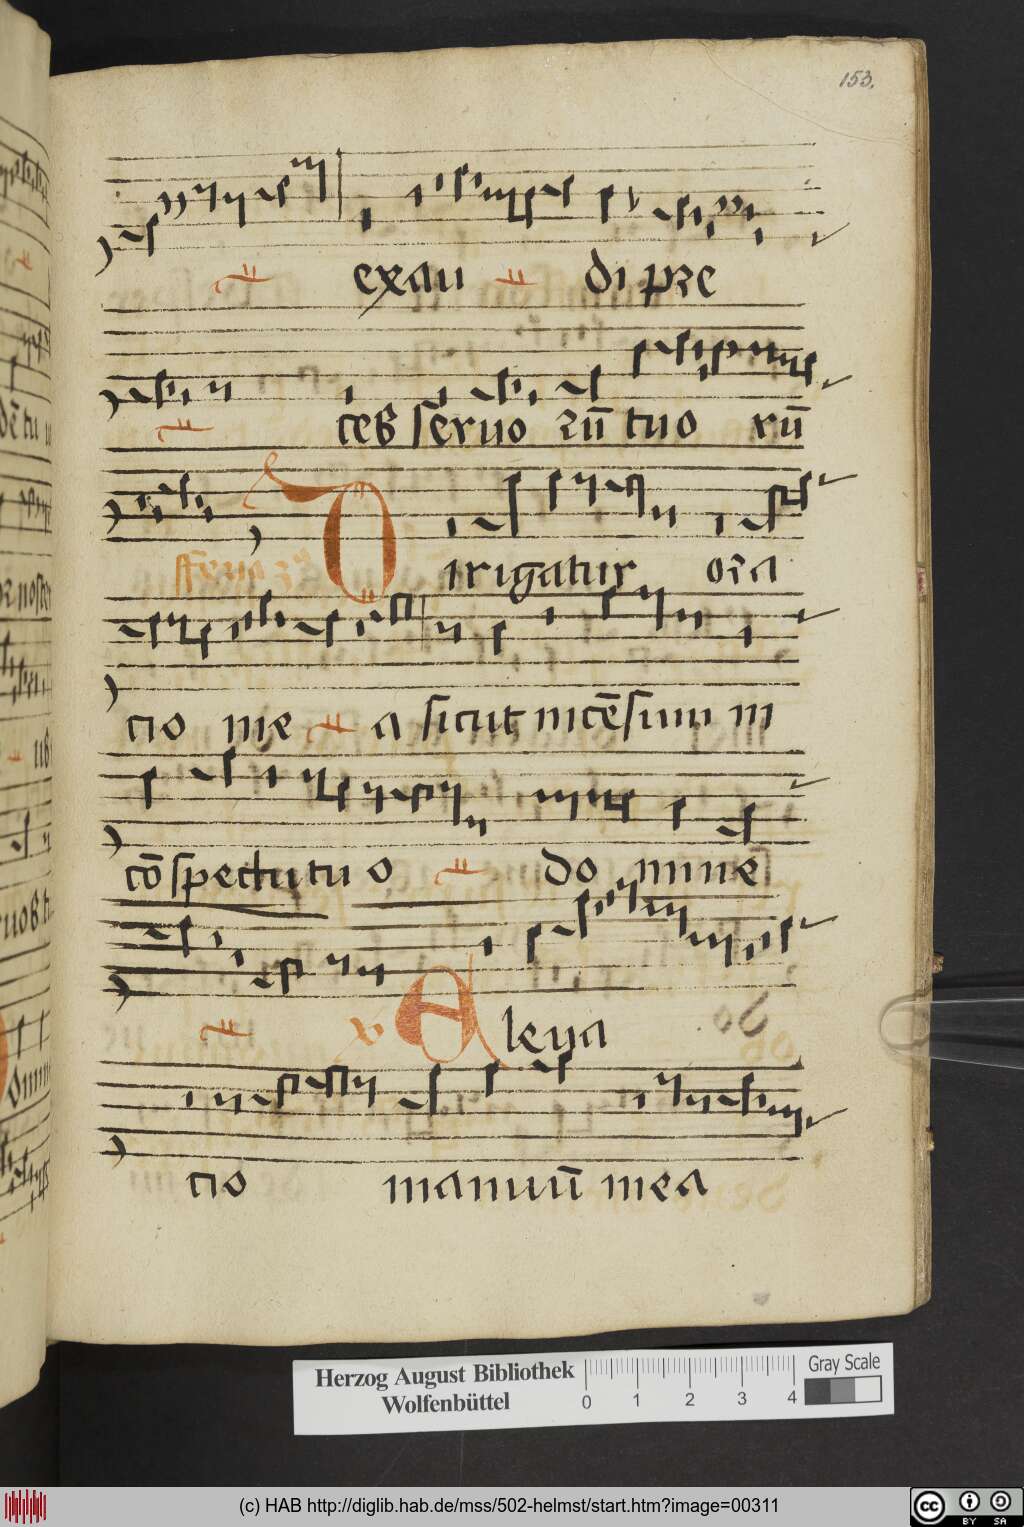 153.
exau di pre
ces servo rū tuo rū
Dirigatur ora
cio me a sicut incēsum in
cōspectu tuo do mine
v Aleua
cio manuū mea
Herzog August Bibliothek
Wolfenbüttel
0 1 2 3 4
Gray Scale
(c) HAB http://diglib.hab.de/mss/502-helmst/start.htm?image=00311
cc BY SA